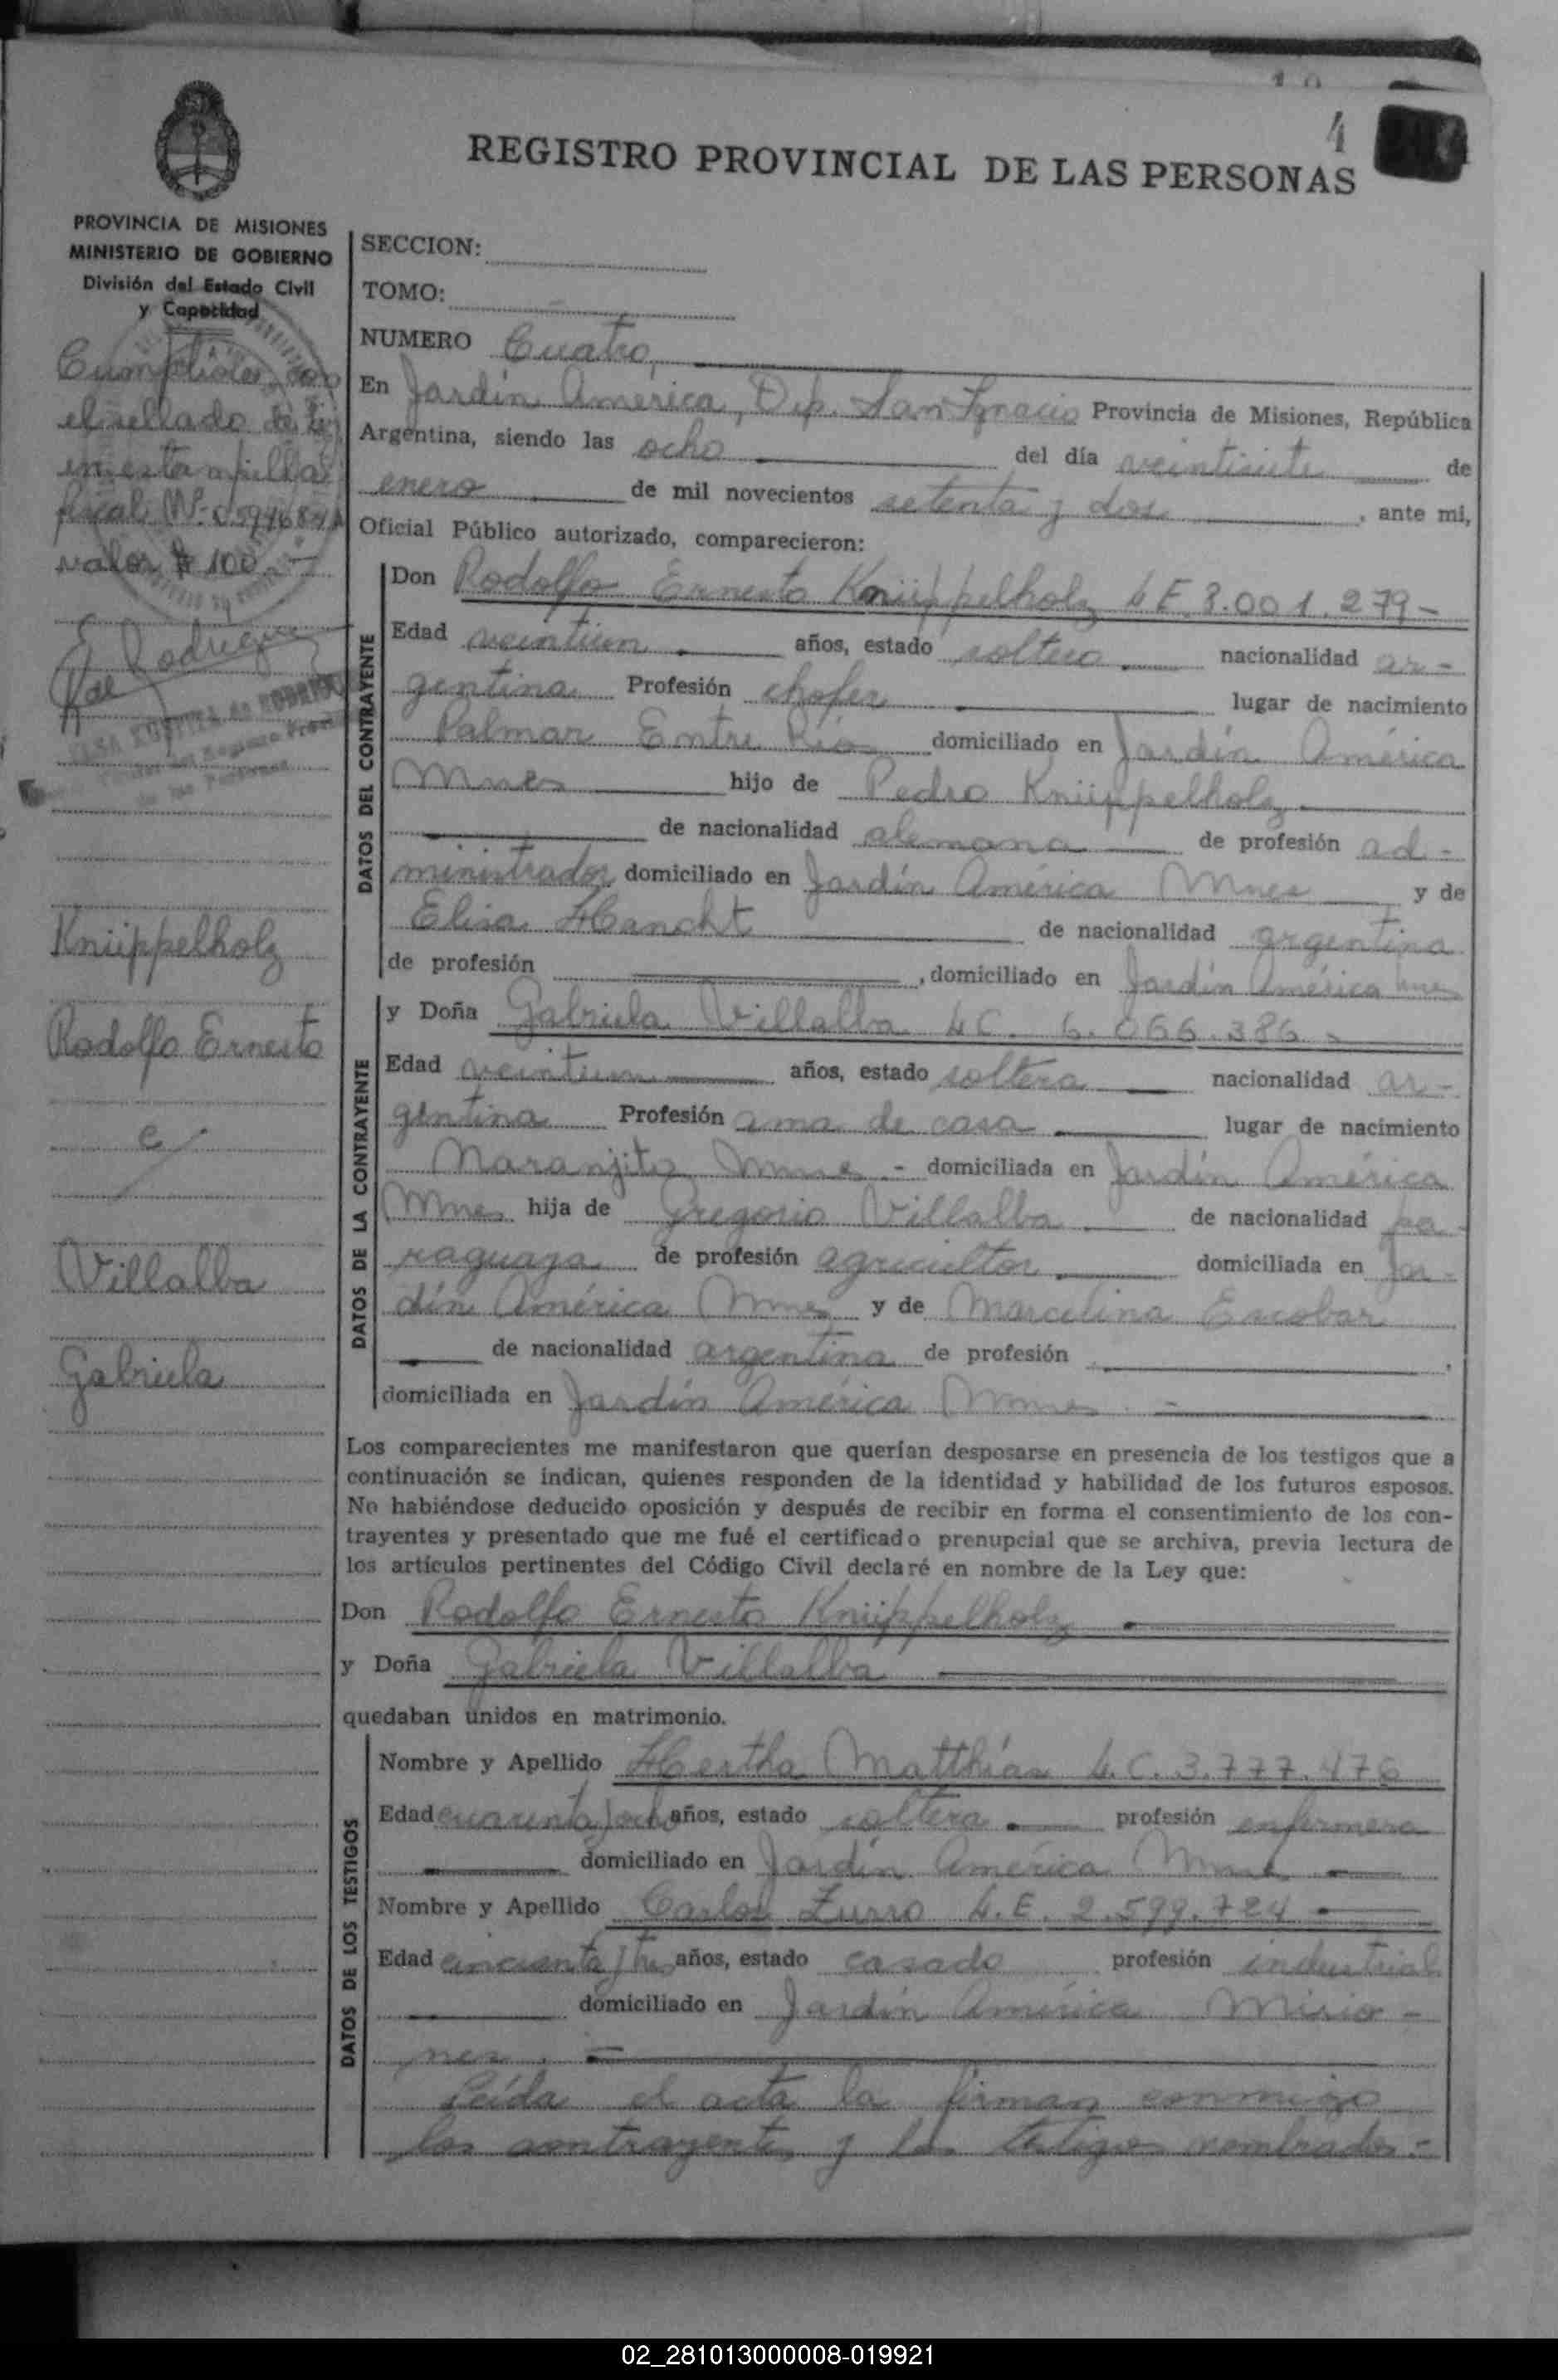 4
REGISTRO PROVINCIAL DE LAS PERSONAS
PROVINCIA DE MISIONES
MINISTERIO DE GOBIERNO
División del Estado Civil
y Capacidad
Cumplido con
el sellado de ley
en estampilla
fiscal Nº
valor $ 100.-
E Rodriguez
de
ELSA de RODRIGUEZ
de las Personas
Knüppelholz
Rodolfo Ernesto
c/
Villalba
Gabriela
SECCION:
TOMO:
NUMERO Cuatro,
En Jardín América, Dep. San Ignacio Provincia de Misiones, República
Argentina, siendo las ocho del día veintisiete de
enero de mil novecientos setenta y dos , ante mi,
Oficial Público autorizado, comparecieron:
DATOS DEL CONTRAYENTE
Don Rodolfo Ernesto Knüppelholz L E 8.001.279-
Edad veintiún años, estado soltero nacionalidad ar-
gentina Profesión chofer lugar de nacimiento
Palmar Entre Ríos domiciliado en Jardín América
Mnes hijo de Pedro Knüppelholz
de nacionalidad alemana de profesión ad-
ministrador domiciliado en Jardín América Mnes y de
Elisa Hancht de nacionalidad argentina
de profesión , domiciliado en Jardín América Mnes
DATOS DE LA CONTRAYENTE
y Doña Gabriela Villalba L C. 6.066.386 -
Edad veintiun años, estado soltera nacionalidad ar-
gentina Profesión ama de casa lugar de nacimiento
Naranjito Mnes - domiciliada en Jardín América
Mnes hija de Gregorio Villalba de nacionalidad pa-
raguaya de profesión agricultor domiciliada en Jar-
dín América Mnes y de Marcelina Escobar
de nacionalidad argentina de profesión ,
domiciliada en Jardín América Mnes . -
Los comparecientes me manifestaron que querían desposarse en presencia de los testigos que a
continuación se indican, quienes responden de la identidad y habilidad de los futuros esposos.
No habiéndose deducido oposición y después de recibir en forma el consentimiento de los con-
trayentes y presentado que me fué el certificado prenupcial que se archiva, previa lectura de
los artículos pertinentes del Código Civil declaré en nombre de la Ley que:
Don Rodolfo Ernesto Knüppelholz
y Doña Gabriela Villalba
quedaban unidos en matrimonio.
DATOS DE LOS TESTIGOS
Nombre y Apellido Hertha Matthías L. C. 3.777.476
Edad cuarenta y ocho años, estado soltera profesión enfermera
domiciliado en Jardín América Mnes
Nombre y Apellido Carlos Zurro L. E. 2.599.724
Edad cincuenta y tres años, estado casado profesión industrial
domiciliado en Jardín América Misio-
nes. -
Leída el acta la firman conmigo
los contrayentes y los testigos nombrados.-
02_281013000008-019921